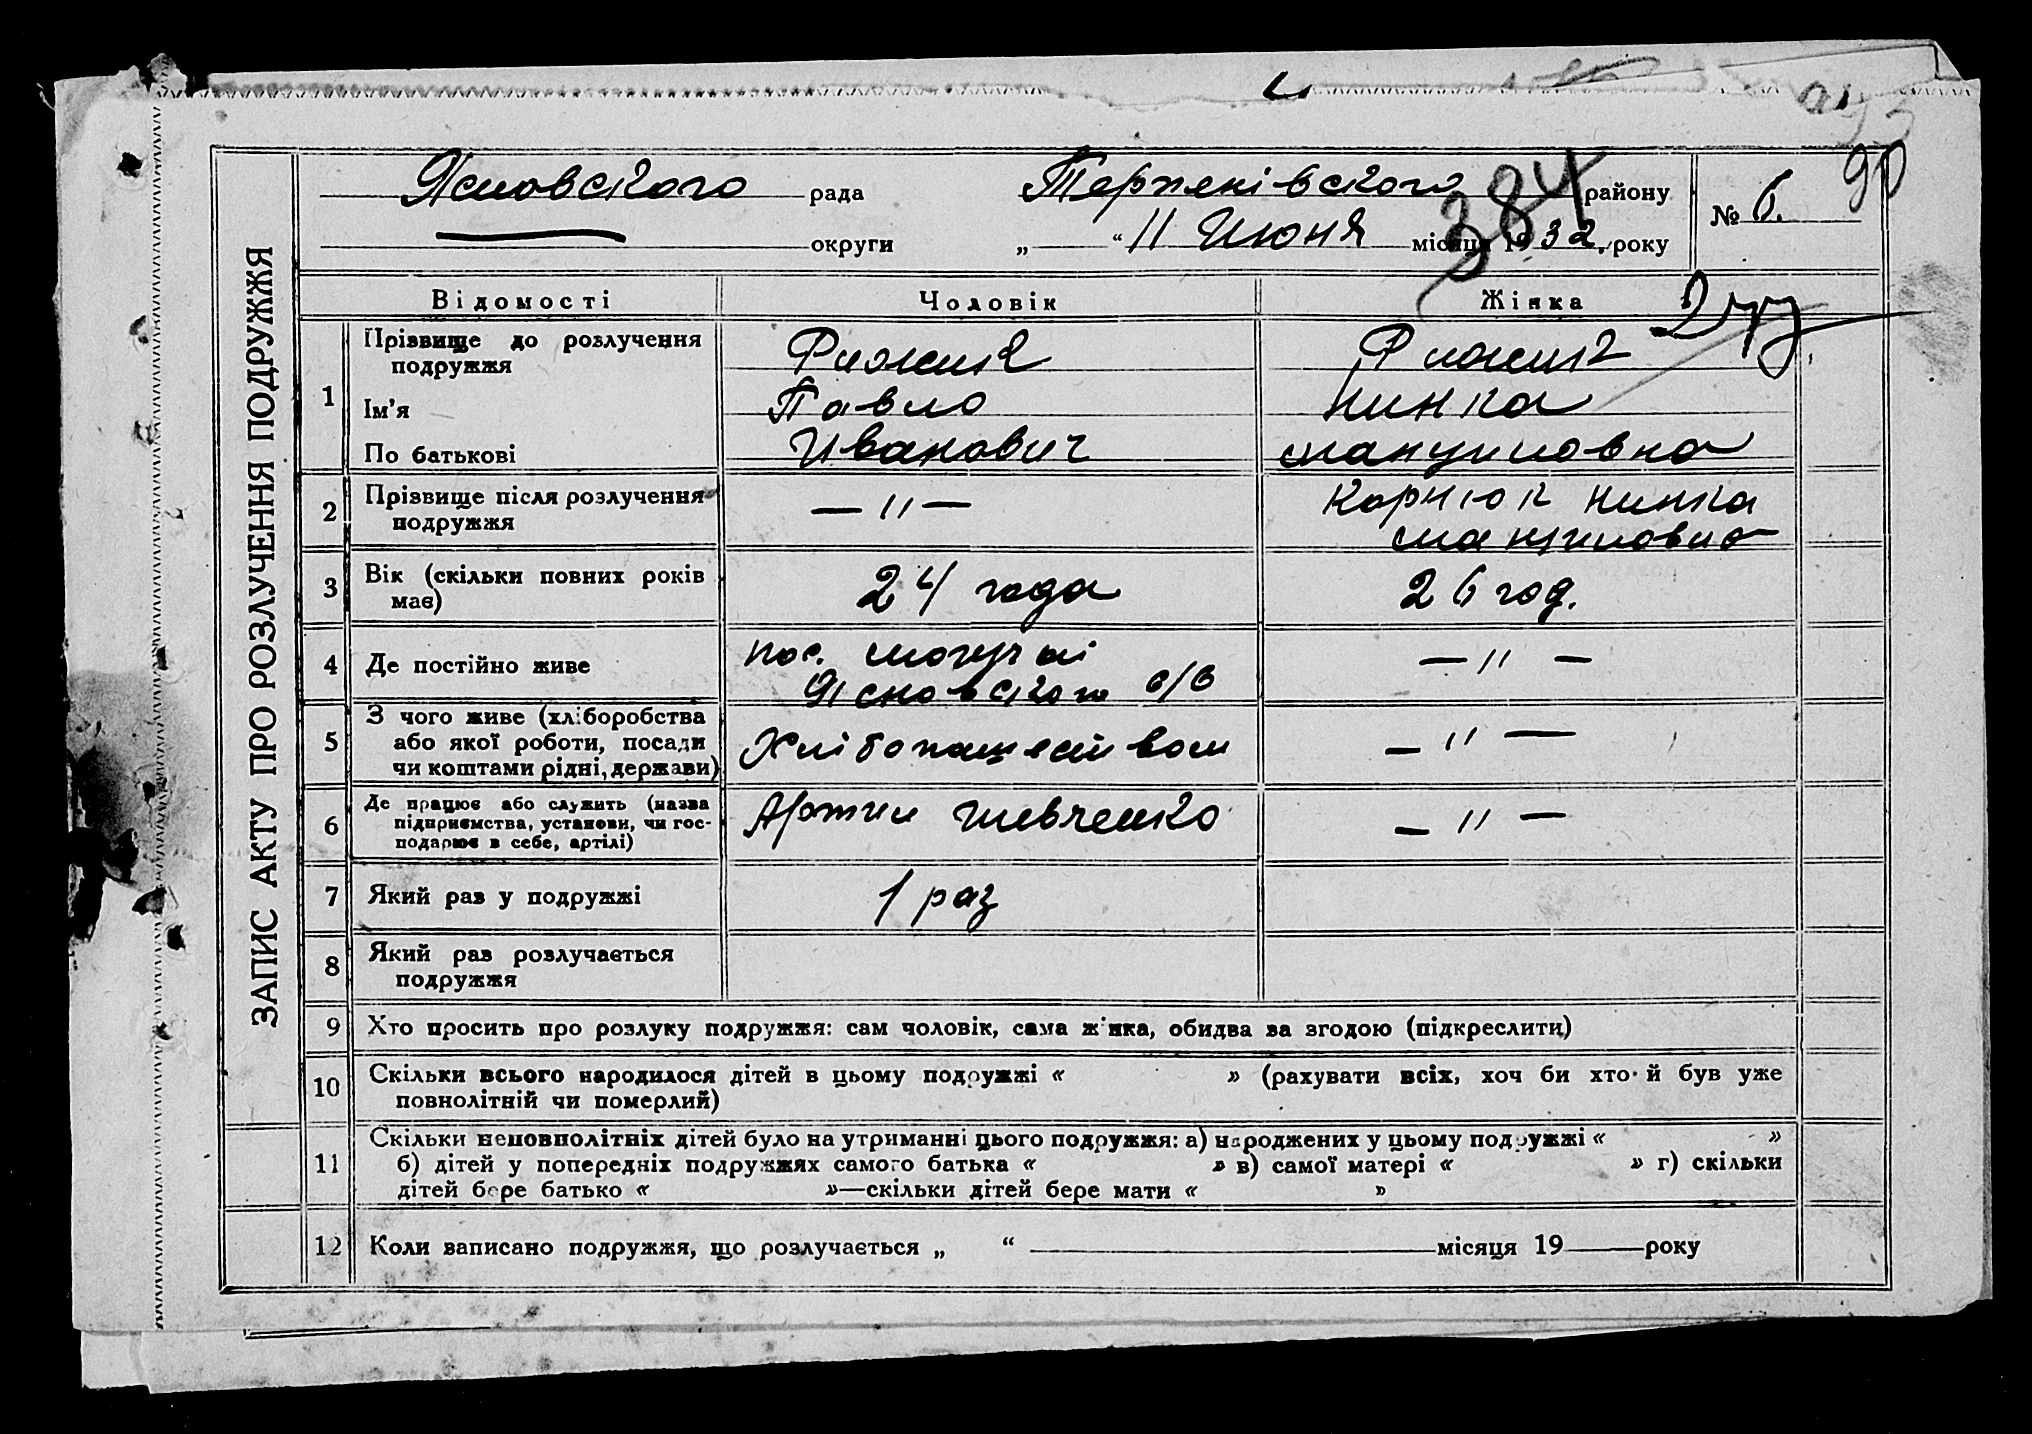 90
ЗАПИС АКТУ ПРО РОЗЛУЧЕННЯ ПОДРУЖЖЯ
Ясновского рада
округи
района
384
Терпеніівского району
„ “ 11 Июня місяця 1932. року
№ 6.
Відомості Чоловік Жінка
1 Прізвище до розлучення подружжя
Ім’я Павло Нинка
По батькові Иванович
2 Прізвище після розлучення подружжя — 〃 — Корнюк Нинка
3 Вік (скільки повних років має) 24 года 26 год.
4 Де постійно живе пос. — 〃 —
Ясновского с/в
5 З чого живе (хліборобства або якої роботи, посади чи коштами рідні, держави) Хлібопашеством — 〃 —
6 Де працює або служить (назва підприємства, установи, чи господарює в себе, артілі) Артил Шевченко — 〃 —
7 Який раз у подружжі 1 раз
8 Який раз розлучається подружжя
9 Хто просить про розлуку подружжя: сам чоловік, сама жінка, обидва за згодою (підкреслити)
10 Скільки всього народилося дітей в цьому подружжі « » (рахувати всіх, хоч би хто й був уже
повнолітній чи померлий)
11 Скільки неповнолітніх дітей було на утриманні цього подружжя: а) народжених у цьому подружжі « »
б) дітей у попередніх подружжях самого батька « » в) самої матері « » г) скільки
дітей бере батько « »—скільки дітей бере мати « »
12 Коли записано подружжя, що розлучається „ “ місяця 19 року